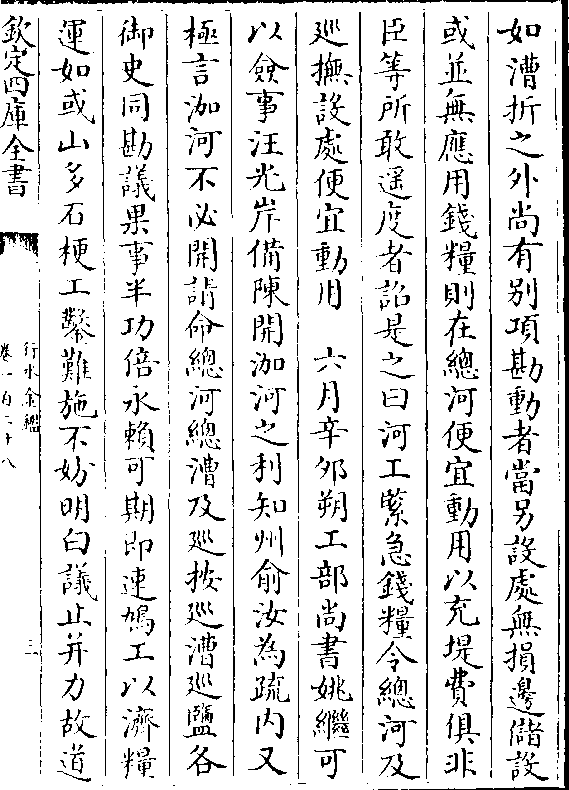 如漕折之外尚有别項勘動者當另設處無損邊儲設
或並無應用錢糧則在總河便宜動用以充堤費俱非
臣等所敢遥度者詔是之曰河工緊急錢糧令總河及
廵撫設處便宜動用　六月辛夘朔工部尚書姚繼可
以僉事汪光岸備陳開泇河之利知州俞汝為疏内又
極言泇河不必開請命總河總漕及廵按廵漕廵鹽各
御史同勘議果事半功倍永賴可期即速鳩工以濟糧
運如或山多石梗工鑿難施不妨明白議止并力故道
欽定四庫全書
行水金鑑
卷一百二十八
三